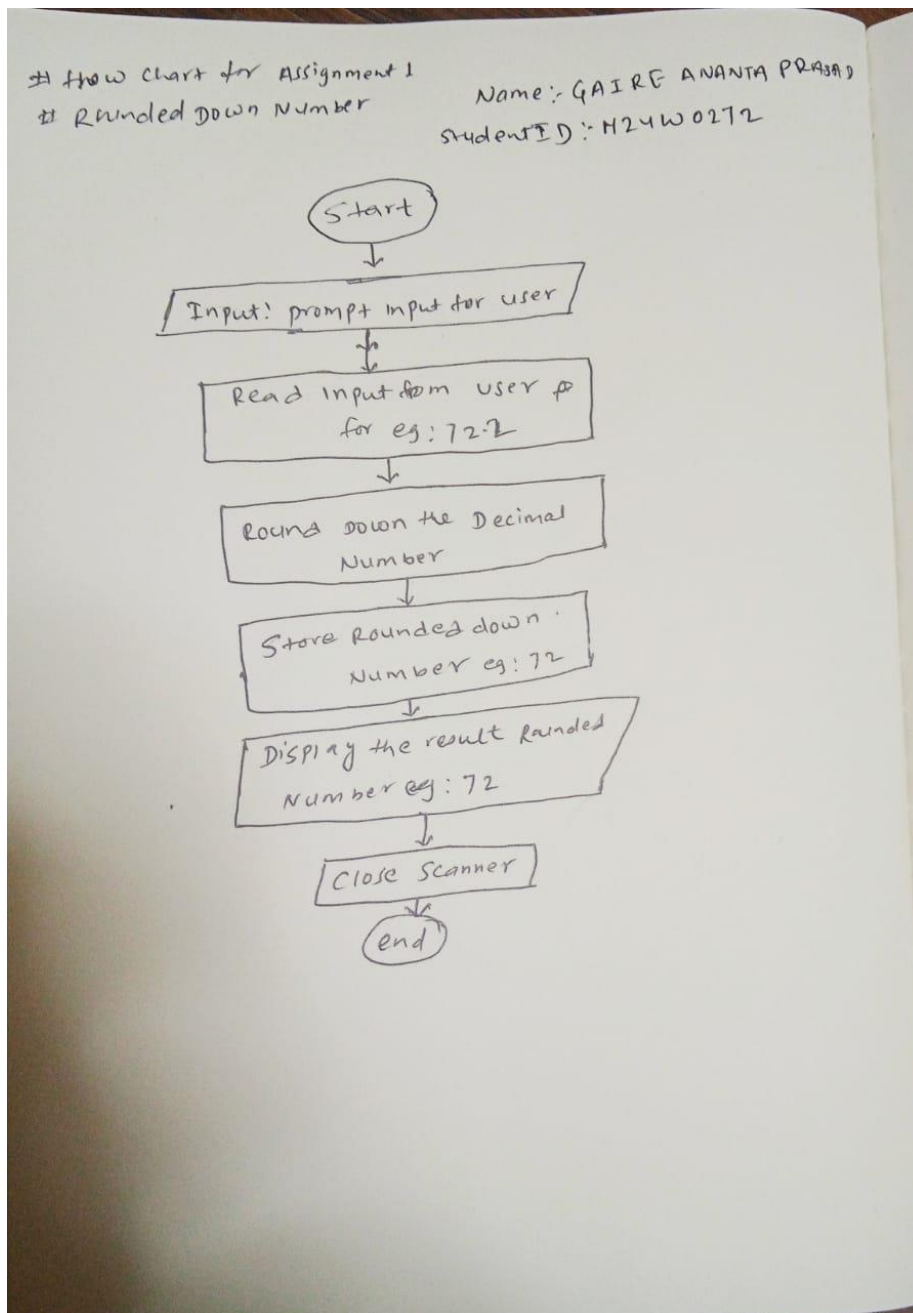 # flow chart for Assignment 1
# Rounded Down Number
Name:- GAIRE ANANTA PRASAD
Student ID:- M24W0272
Start
Input: prompt input for user
Read input from user
for eg: 72.2
Round Down the Decimal
Number
Store Rounded down
Number eg: 72
Display the result Rounded
Number eg: 72
Close Scanner
end